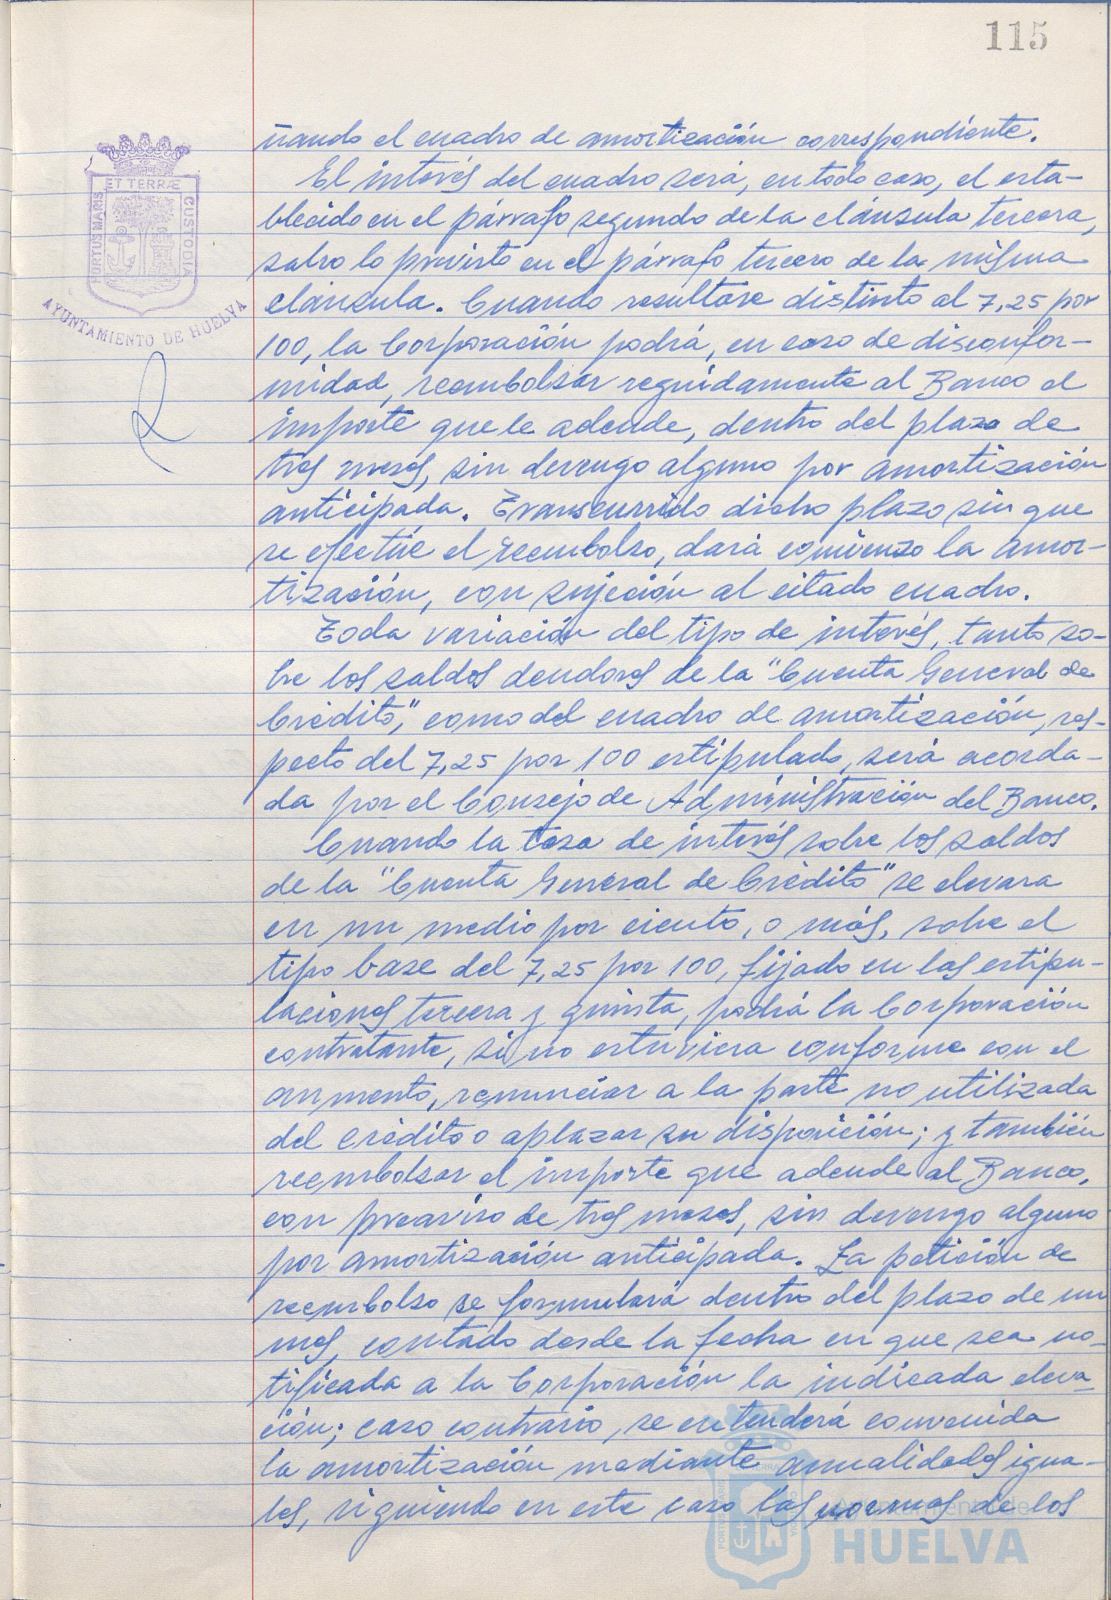 115
ñando el cuadro de amortización correspondiente.
El interés del cuadro será, en todo caso, el esta-
blecido en el párrafo segundo de la cláusula tercera,
salvo lo previsto en el párrafo tercero de la misma
cláusula. Cuando resultare distinto al 7,25 por
100, la Corporación podrá, en caso de disconfor-
midad, reembolsar seguidamente al Banco el
importe que le adeude, dentro del plazo de
tres meses, sin devengo alguno por amortización
anticipada. Transcurrido dicho plazo sin que
se efectúe el reembolso, dará comienzo la amor-
tización, con sujeción al citado cuadro.
Toda variación del tipo de interés, tanto so-
bre los saldos deudores de la "Cuenta General de
Crédito", como del cuadro de amortización, res-
pecto del 7,25 por 100 estipulado, será acorda-
da por el Consejo de Administración del Banco.
Cuando la tasa de interés sobre los saldos
de la "Cuenta General de Crédito" se elevara
en un medio por ciento, o más, sobre el
tipo base del 7,25 por 100, fijado en las estipu-
laciones tercera y quinta, podrá la Corporación
contratante, si no estuviera conforme con el
aumento, renunciar a la parte no utilizada
del crédito o aplazar su disposición; y también
reembolsar el importe que adeude al Banco,
con preaviso de tres meses, sin devengo alguno
por amortización anticipada. La petición de
reembolso se formulará dentro del plazo de un
mes, contado desde la fecha en que sea no-
tificada a la Corporación la indicada eleva-
ción; caso contrario, se entenderá convenida
la amortización mediante anualidades igua-
les, siguiendo en este caso las normas de los
PORTUS MARIS ET TERRÆ CUSTODIA
AYUNTAMIENTO DE HUELVA
Ayuntamiento de
HUELVA